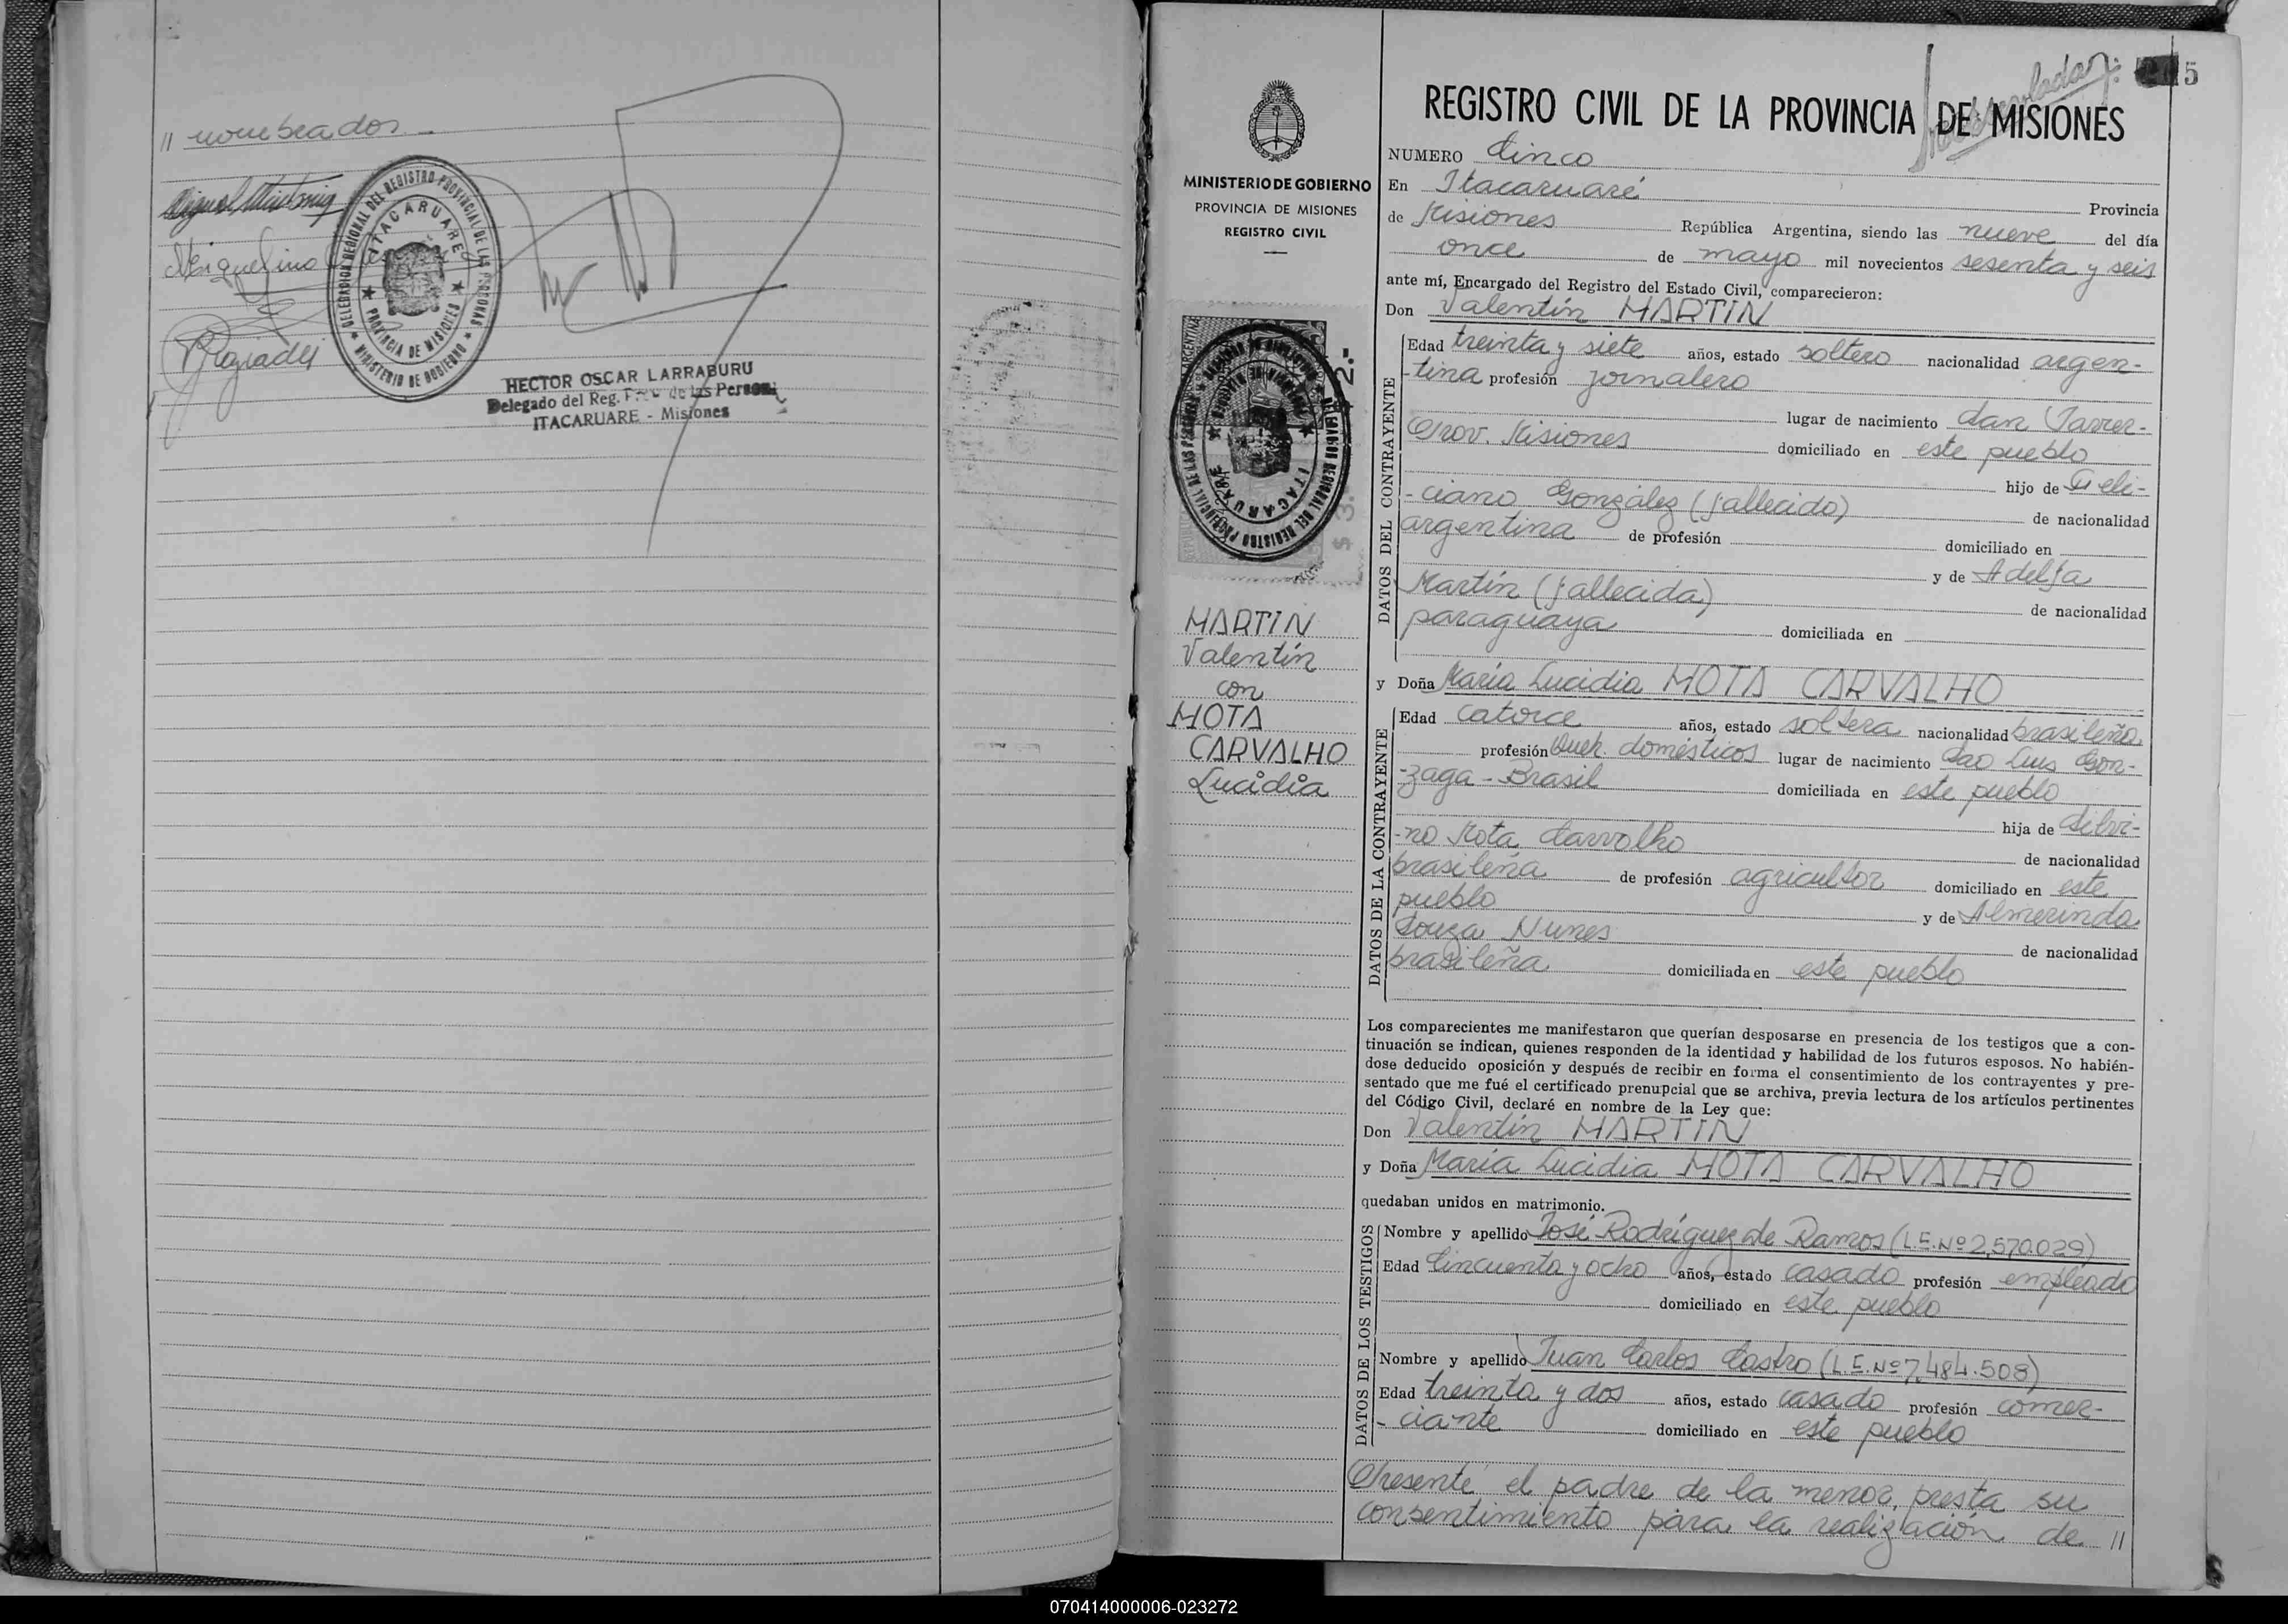 " nombrados.-
DELEGACION REGIONAL DEL REGISTRO PROVINCIAL DE LAS PERSONAS
ITACARUARE
PROVINCIA DE MISIONES
MINISTERIO DE GOBIERNO
HECTOR OSCAR LARRABURU
Delegado del Reg. Prov. de las Person.
ITACARUARE - Misiones
5
MINISTERIO DE GOBIERNO
PROVINCIA DE MISIONES
REGISTRO CIVIL
MARTIN
Valentín
con
MOTA
CARVALHO
Lucidia
REGISTRO CIVIL DE LA PROVINCIA DE MISIONES
NUMERO Cinco
En Itacaruaré Provincia
de Misiones República Argentina, siendo las nueve del día
once de mayo mil novecientos sesenta y seis
ante mí, Encargado del Registro del Estado Civil, comparecieron:
Don Valentín MARTIN
DATOS DEL CONTRAYENTE
Edad treinta y siete años, estado soltero nacionalidad argen-
-tina profesión jornalero
lugar de nacimiento San Javier-
Prov. Misiones domiciliado en este pueblo
hijo de Feli-
-ciano González (fallecido) de nacionalidad
argentina de profesión domiciliado en
y de Adelfa
Martín (fallecida) de nacionalidad
paraguaya domiciliada en
y Doña María Lucidia MOTA CARVALHO
DATOS DE LA CONTRAYENTE
Edad catorce años, estado soltera nacionalidad brasileña
profesión Queh. domésticos lugar de nacimiento Sao Luis Gon-
-zaga - Brasil domiciliada en este pueblo
hija de Silvi-
-no Mota Carvalho de nacionalidad
brasileña de profesión agricultor domiciliado en este
pueblo y de Almerinda
Souza Nunes de nacionalidad
brasileña domiciliada en este pueblo
Los comparecientes me manifestaron que querían desposarse en presencia de los testigos que a con-
tinuación se indican, quienes responden de la identidad y habilidad de los futuros esposos. No habién-
dose deducido oposición y después de recibir en forma el consentimiento de los contrayentes y pre-
sentado que me fué el certificado prenupcial que se archiva, previa lectura de los artículos pertinentes
del Código Civil, declaré en nombre de la Ley que:
Don Valentín MARTIN
y Doña María Lucidia MOTA CARVALHO
quedaban unidos en matrimonio.
DATOS DE LOS TESTIGOS
Nombre y apellido José Rodríguez de Ramos (L.E.Nº2.570.029)
Edad Cincuenta y ocho años, estado casado profesión empleado
domiciliado en este pueblo
Nombre y apellido Juan Carlos Castro (L.E.Nº7.484.508)
Edad treinta y dos años, estado casado profesión comer-
-ciante domiciliado en este pueblo
Presente el padre de la menor, presta su
consentimiento para la realización de "
070414000006-023272